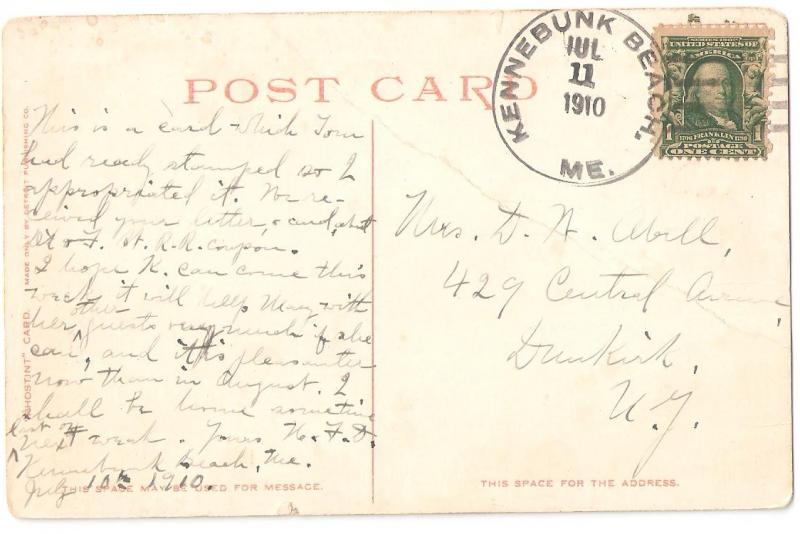 POST CARD
KENNEBUNK BEACH.
JUL
11
1910
ME.
SERIES 1902
UNITED STATES OF
AMERICA
1 FRANKLIN 1
POSTAGE
ONE CENT
This is a card which Tom
had ready stamped so I
appropriated it. We re-
ceived your letter, &
& F. St. R.R. coupon.
I hope K. can come this
week, it will help May with
her other guests very much if she
can, and it is pleasanter
now than in August. I
shall be home sometime
last of
next week. Yours H. F. D.
Kennebunk Beach, Me.
July 10th 1910.
Mrs. D. N.
429 Central Avenue,
Dunkirk,
N.Y.
"PHOSTINT" CARD. MADE ONLY BY DETROIT PUBLISHING CO.
THIS SPACE MAY BE USED FOR MESSAGE.
THIS SPACE FOR THE ADDRESS.